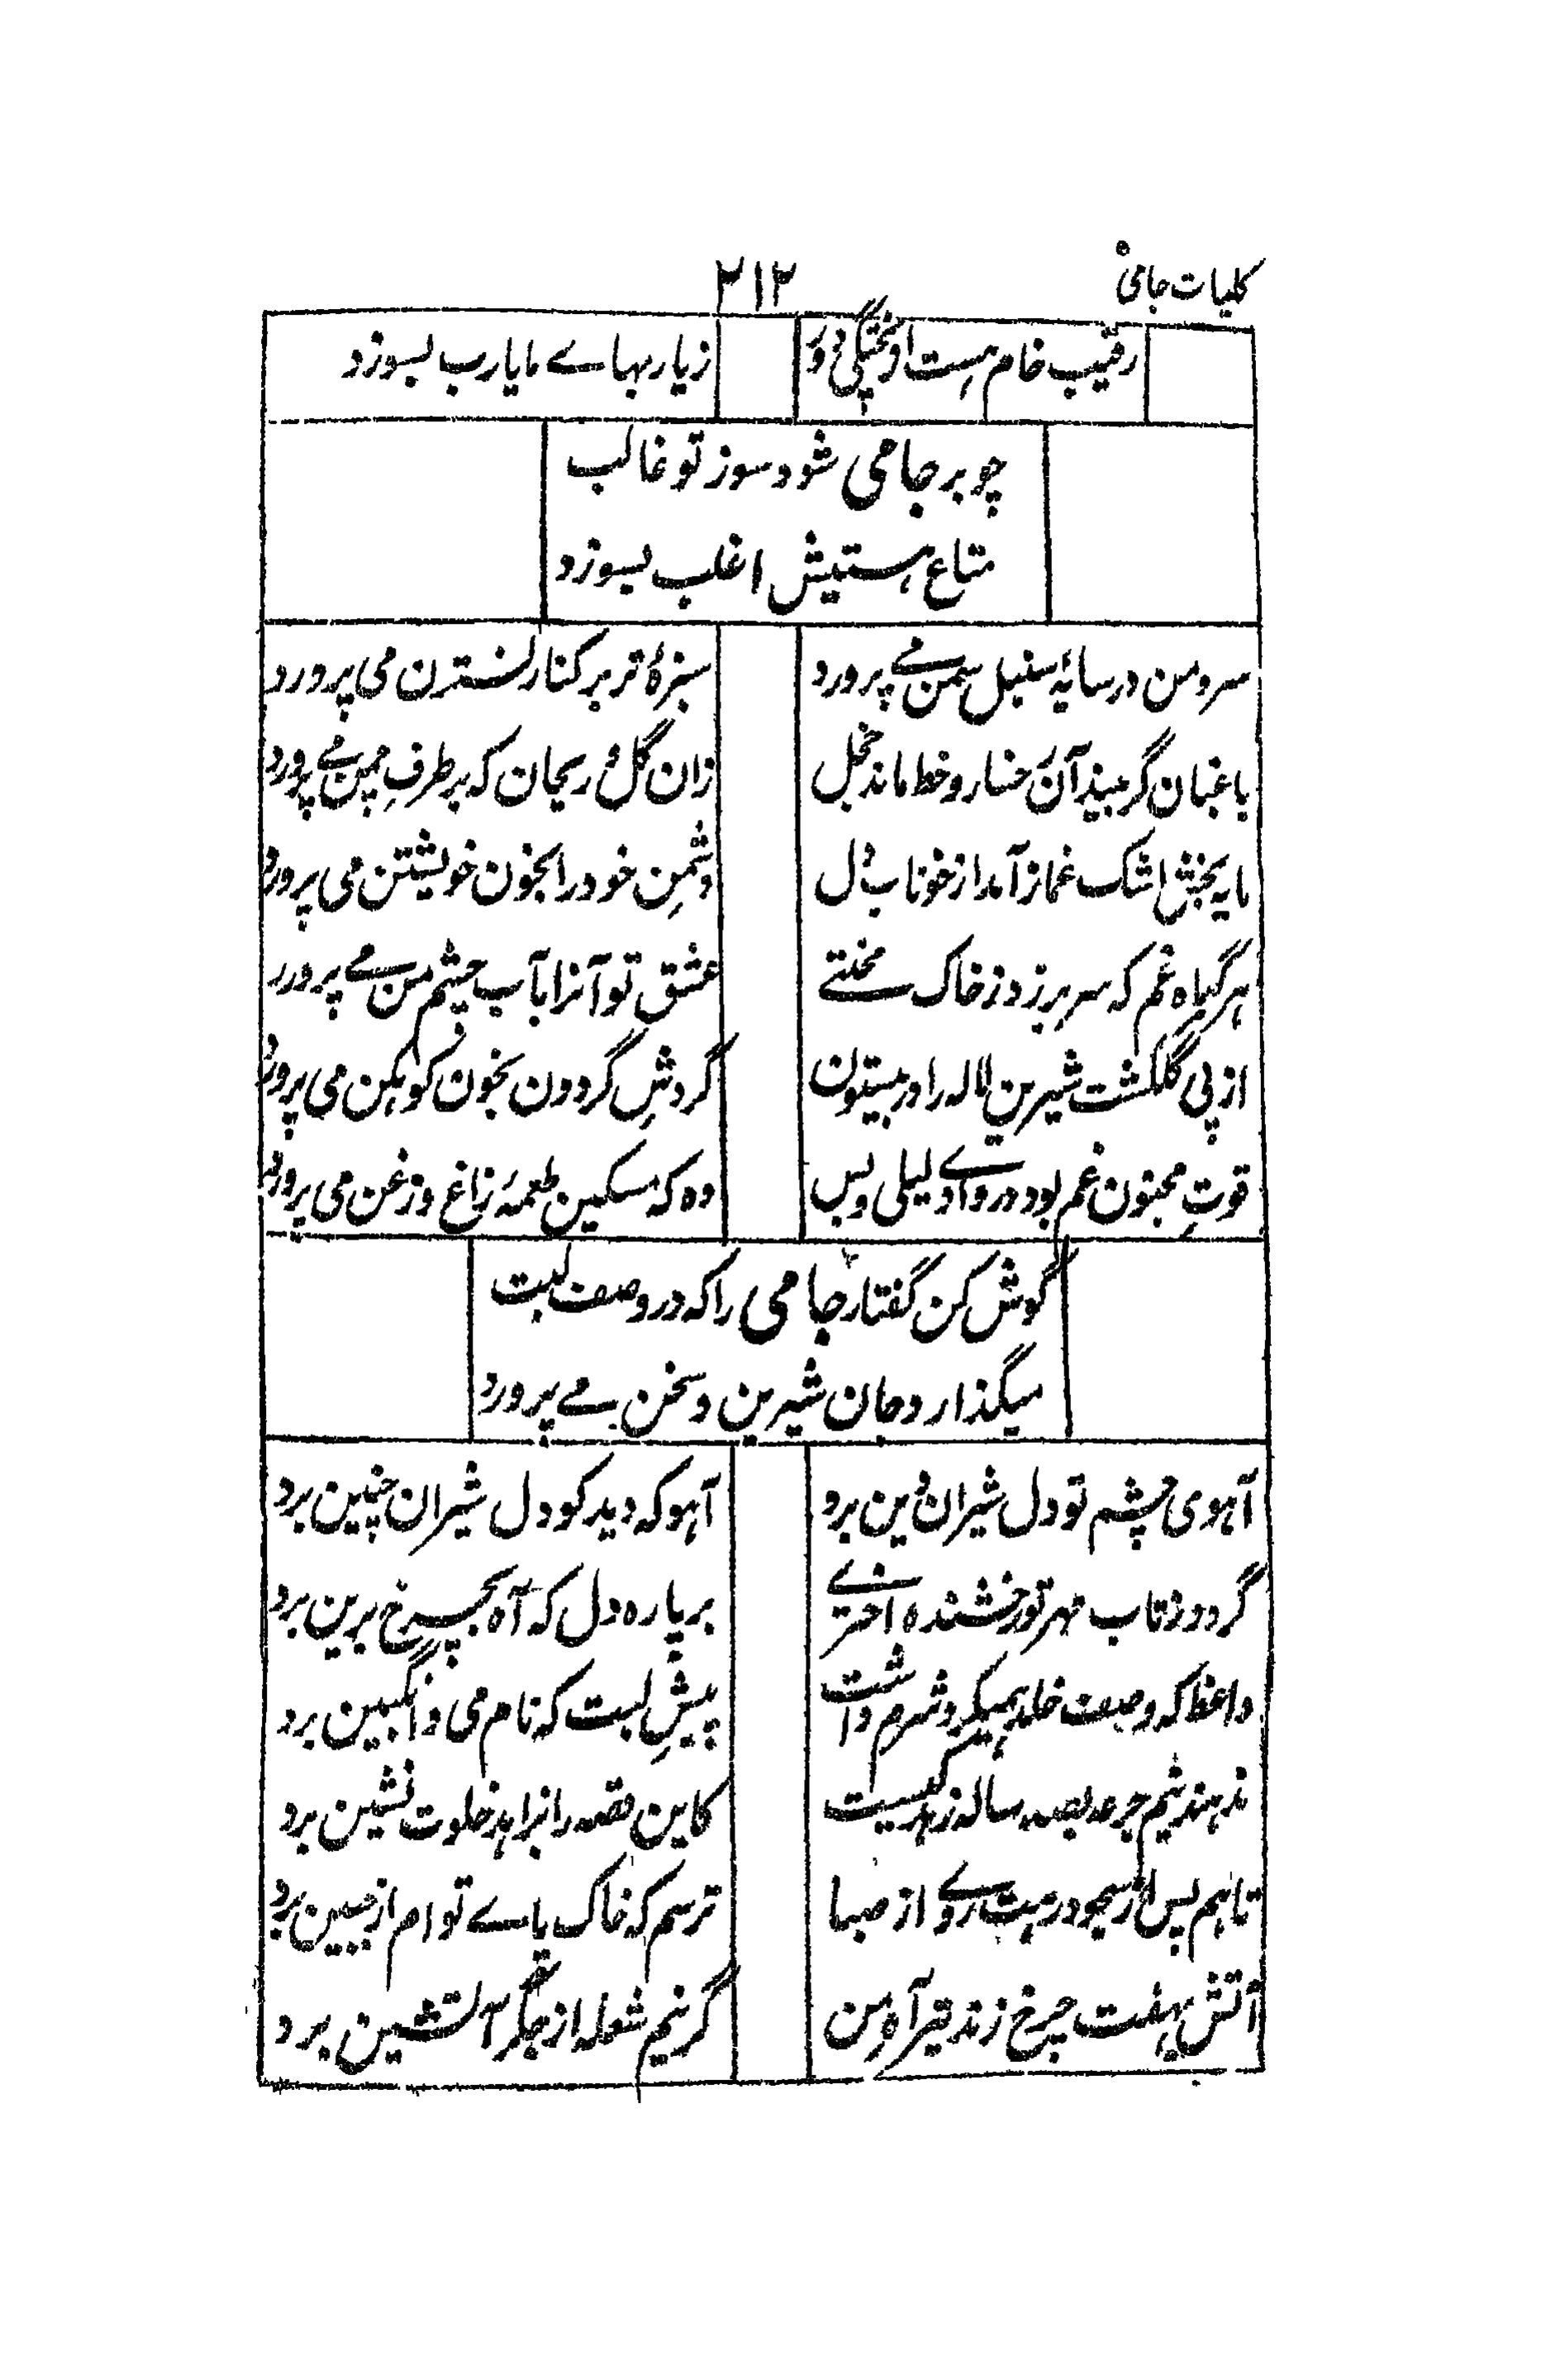 کلیات جامیؒ
۲۱۲
رقیب خام هست او پختگی دور
زیاربهاے ما یارب بسوزد
چو بر جامی شود سوز تو غالب
متاع هستیش اغلب بسوزد
سرو من در سایۂ سنبل سمن مے پرورد
سبزۂ تر بر کنار نسترن می پرورد
باغبان گر بیند آن رخسار و خط ماند خجل
زان گل و ریحان که بر طرفِ چمن مے پرورد
مایه بخش اشک غماز آمد از خوناب دل
دشمنِ خود را بخون خویشتن می پرورد
هر گیاه غم که سر برزد ز خاک محنتے
عشق تو آنرا بآب چشم من مے پرورد
از پی گلگشت شیرین لاله را در بیستون
گردشِ گردون بخون کوهکن می پرورد
قوتِ مجنون غم بود در وادے لیلی و بس
وه که مسکین طعمۂ زاغ و زغن می پرورد
گوش کن گفتار جامی را که در وصف لبت
میگذارد جان شیرین و سخن مے پرورد
آهوی چشم تو دل شیران دین برد
آهو که دید کو دل شیران چنین برد
گردد ز تاب مهر تو رخشنده اخترے
هر پاره دل که آه بچرخ برین برد
واعظ که وصف خلد همیکرد شرم داشت
پیشِ لبت که نام می و انگبین برد
ندهند نیم جرعه بصد ساله زهد کیست
کاین قصه را بزاهد خلوت نشین برد
تابم پس از سجود رهت روے از صبا
ترسم که خاک پاے تو ام از جبین برد
آتش بهفت چرخ زند تیر آه من
گر نیم شعله از جگر آتشین برد